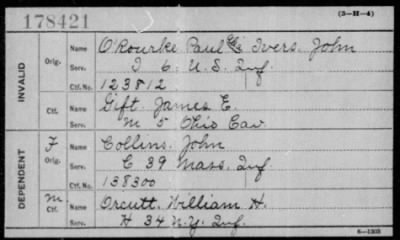 178421
(3-H-4)
INVALID
Orig. Name O'Rourke Paul alias Ivers, John
Serv. I 6. U.S. Inf.
Ctf. No. 123812
Ctf. Name Gift, James E.
Serv. M 5 Ohio Cav
DEPENDENT
F Orig. Name Collins, John
Serv. C 39 Mass. Inf.
Ctf. No. 138300
M. Ctf. Name Orcutt, William H.
Serv. H 34 N.Y. Inf.
6-1303